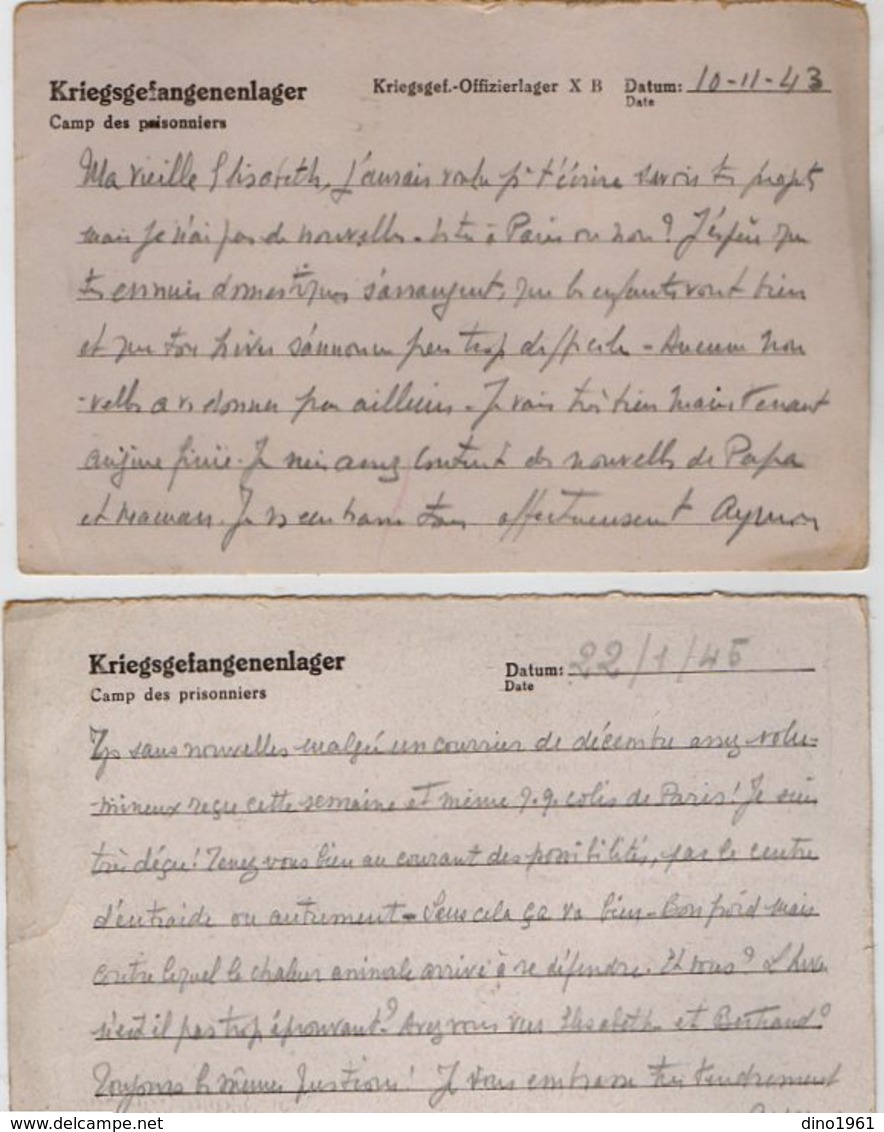 Kriegsgefangenenlager
Camp des prisonniers
Kriegsgef.-Offizierlager X B Datum: 10-11-43
Date
Ma vieille Elisabeth, J'aurais voulu pr t'écrire savoir tes projets
mais je n'ai pas de nouvelles. Es tu à Paris ou non? J'espère que
tes ennuis domestiques s'arrangent, que les enfants vont bien
et que ton hiver s'annonce pas trop difficile - Aucune nou
-velle à vs donner par ailleurs. Je vais très bien maintenant
angine finie. Je suis assez content des nouvelles de Papa
et Maman. Je vs embrasse tous affectueusement Aymon
Kriegsgefangenenlager
Camp des prisonniers
Datum: 22/1/45
Date
Tjs sans nouvelles malgré un courrier de décembre assez volu-
mineux reçu cette semaine et même q.q. colis de Paris! Je suis
très déçu! Tenez vous bien au courant des possibilités, par le centre
d'entraide ou autrement - Sans cela ça va bien - Bon froid mais
contre lequel la chaleur animale arrive à se défendre. Et vous? L'hiver
n'est il pas trop éprouvant? Avez vous vu Elisabeth et Bertrand?
Toujours les mêmes questions! Je vous embrasse très tendrement
dino1961